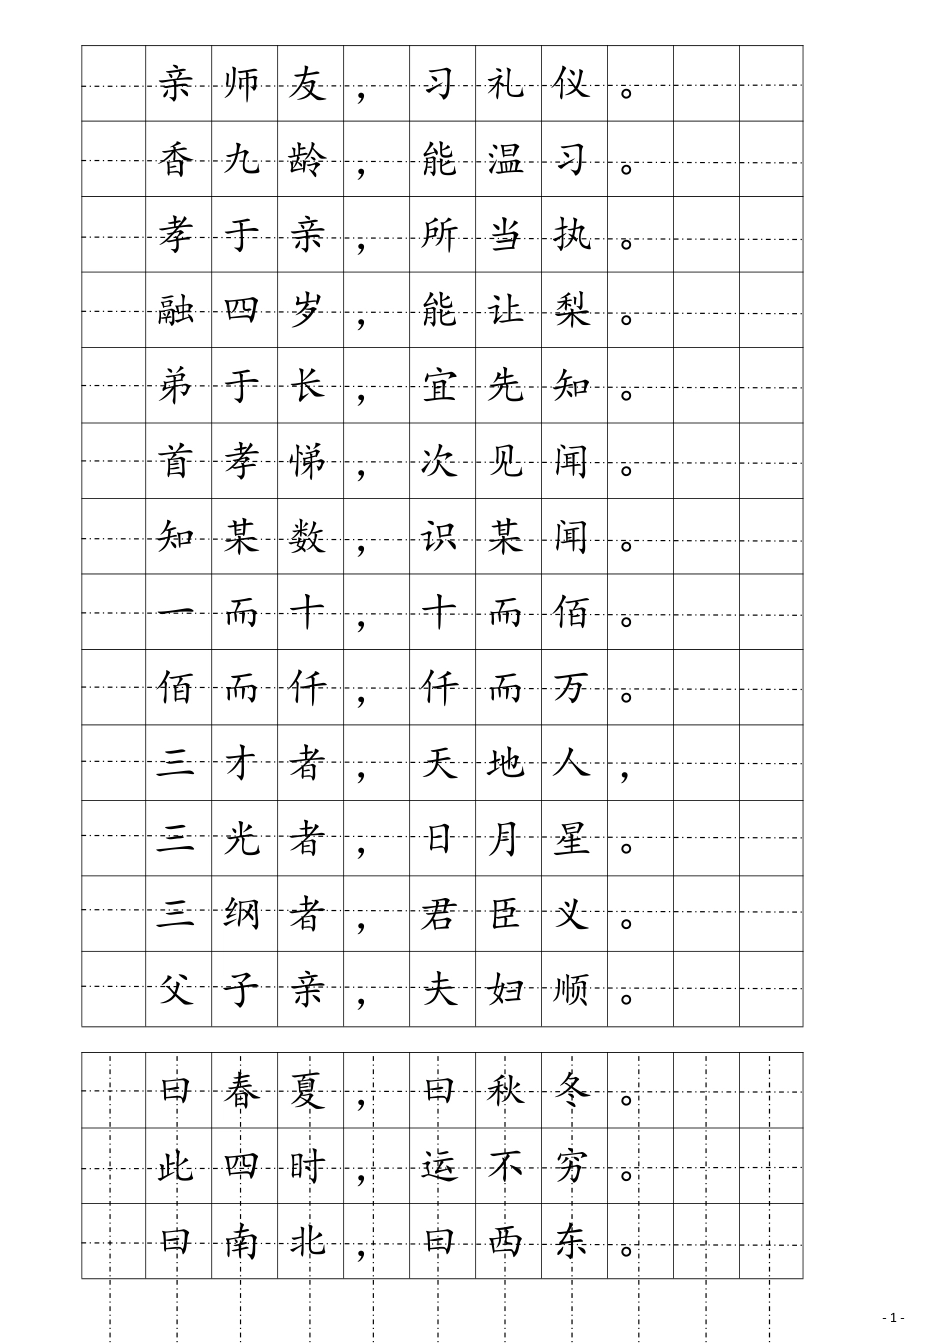 亲师友，习礼仪。
香九龄，能温习。
孝于亲，所当执。
融四岁，能让梨。
弟于长，宜先知。
首孝悌，次见闻。
知某数，识某闻。
一而十，十而佰。
佰而仟，仟而万。
三才者，天地人，
三光者，日月星。
三纲者，君臣义。
父子亲，夫妇顺。
曰春夏，曰秋冬。
此四时，运不穷。
曰南北，曰西东。
- 1 -